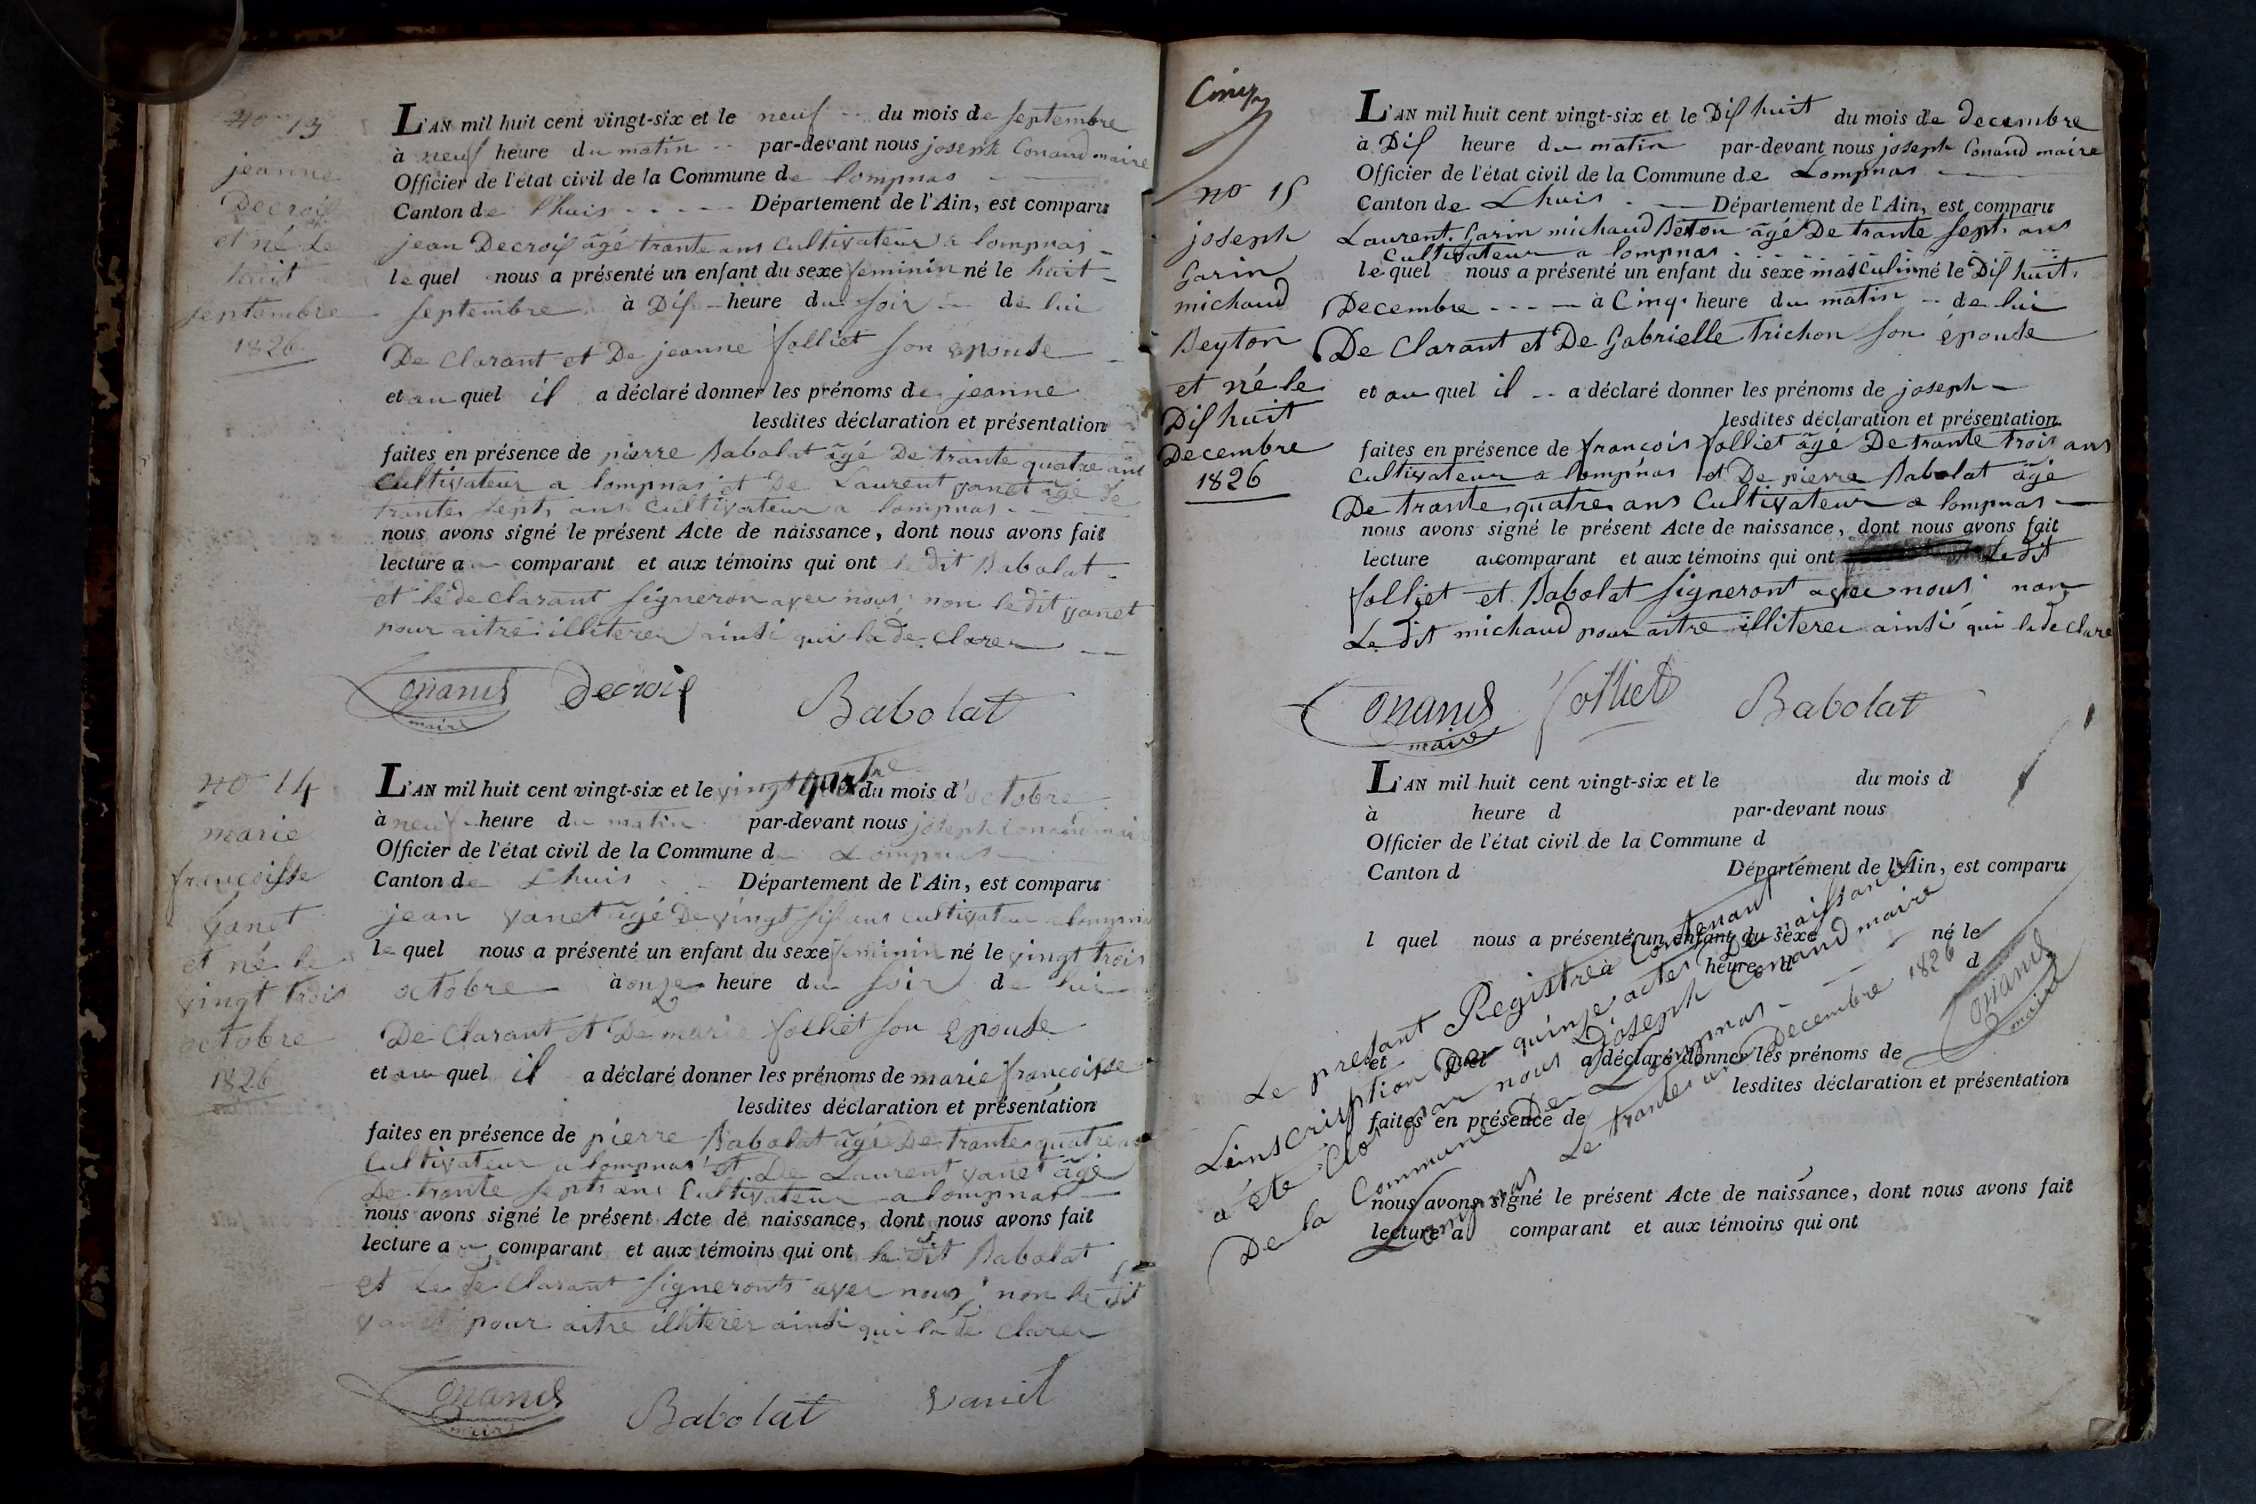 no 13
jeanne
Decroif
et né Le
huit
septembre
1826
L'AN mil huit cent vingt-six et le neuf du mois de septembre
à neuf heure du matin par-devant nous joseph Conand maire
Officier de l'état civil de la Commune de lompnas
Canton de lhuis Département de l'Ain, est comparu
jean Decroif âgé trante ans cultivateur a lompnas
le quel nous a présenté un enfant du sexe feminin né le huit
septembre à Dif heure du soir de lui
De clarant et De jeanne folliet son épouse
et au quel il a déclaré donner les prénoms de jeanne
lesdites déclaration et présentation
faites en présence de pierre Babolat âgé De trante quatre ans
Cultivateur a lompnas et De Laurent vanet âgé de
trante sept ans Cultivateur a lompnas
nous avons signé le présent Acte de naissance, dont nous avons fait
lecture au comparant et aux témoins qui ont le dit Babolat
et le de clarant signeron avec nous; non le dit vanet
pour aitre illiterer ainsi qui la de clarer
Conand maire Decroif Babolat
no 14
marie
francoisse
vanet
et né le
vingt trois
octobre
1826
L'AN mil huit cent vingt-six et le vingt quatre du mois d'octobre
à neuf heure du matin par-devant nous joseph Conand maire
Officier de l'état civil de la Commune de Lompnas
Canton de Lhuis Département de l'Ain, est comparu
jean vanet âgé De vingt sif ans cultivateur a lompnas
le quel nous a présenté un enfant du sexe feminin né le vingt trois
octobre à onze heure du soir de lui
De Clarant et De marie folliet son Epouse
et au quel il a déclaré donner les prénoms de marie francoisse
lesdites déclaration et présentation
faites en présence de pierre Babolat âgé De trante quatre ans
Cultivateur a lompnas et De Laurent vanet âgé
De trante sept ans Cultivateur a lompnas
nous avons signé le présent Acte de naissance, dont nous avons fait
lecture au comparant et aux témoins qui ont le dit Babolat
et Le de Clarant signeronts avec nous; non le dit
vanet pour aitre illiterer ainsi qui la de clarer
Conand maire Babolat vanet
no 15
joseph
Garin
michaud
Beyton
et né le
Dif huit
Decembre
1826
L'AN mil huit cent vingt-six et le Dif huit du mois de decembre
à Dif heure du matin par-devant nous joseph Conand maire
Officier de l'état civil de la Commune de Lompnas
Canton de Lhuis Département de l'Ain, est comparu
Laurent Garin michaud Beton âgé De trante sept ans
Cultivateur a lompnas
le quel nous a présenté un enfant du sexe masculin né le Dif huit
Decembre à Cinq heure du matin de lui
De Clarant et De Gabrielle Trichon son épouse
et au quel il a déclaré donner les prénoms de joseph
lesdites déclaration et présentation
faites en présence de francois folliet âgé De trante trois ans
Cultivateur a lompnas et De pierre Babolat âgé
De trante quatre ans Cultivateur a lompnas
nous avons signé le présent Acte de naissance, dont nous avons fait
lecture au comparant et aux témoins qui ont Le dit
folliet et Babolat signeront avec nous non
Le dit michaud pour aitre illiterer ainsi qui la de clare
Conand maire folliet Babolat
L'AN mil huit cent vingt-six et le du mois d
à heure d par-devant nous
Officier de l'état civil de la Commune d
Canton d Département de l'Ain, est comparu
l quel nous a présenté un enfant du sexe né le
à heure d d
et quel a déclaré donner les prénoms de
lesdites déclaration et présentation
faites en présence de
nous avons signé le présent Acte de naissance, dont nous avons fait
lecture a comparant et aux témoins qui ont
Le presant Registre Contenant
Leinscription De quinze actes De naissance
a été Clos par nous joseph Conand maire
De la Commune De Lompnas
Lompnas Le trante un Decembre 1826
Conand maire